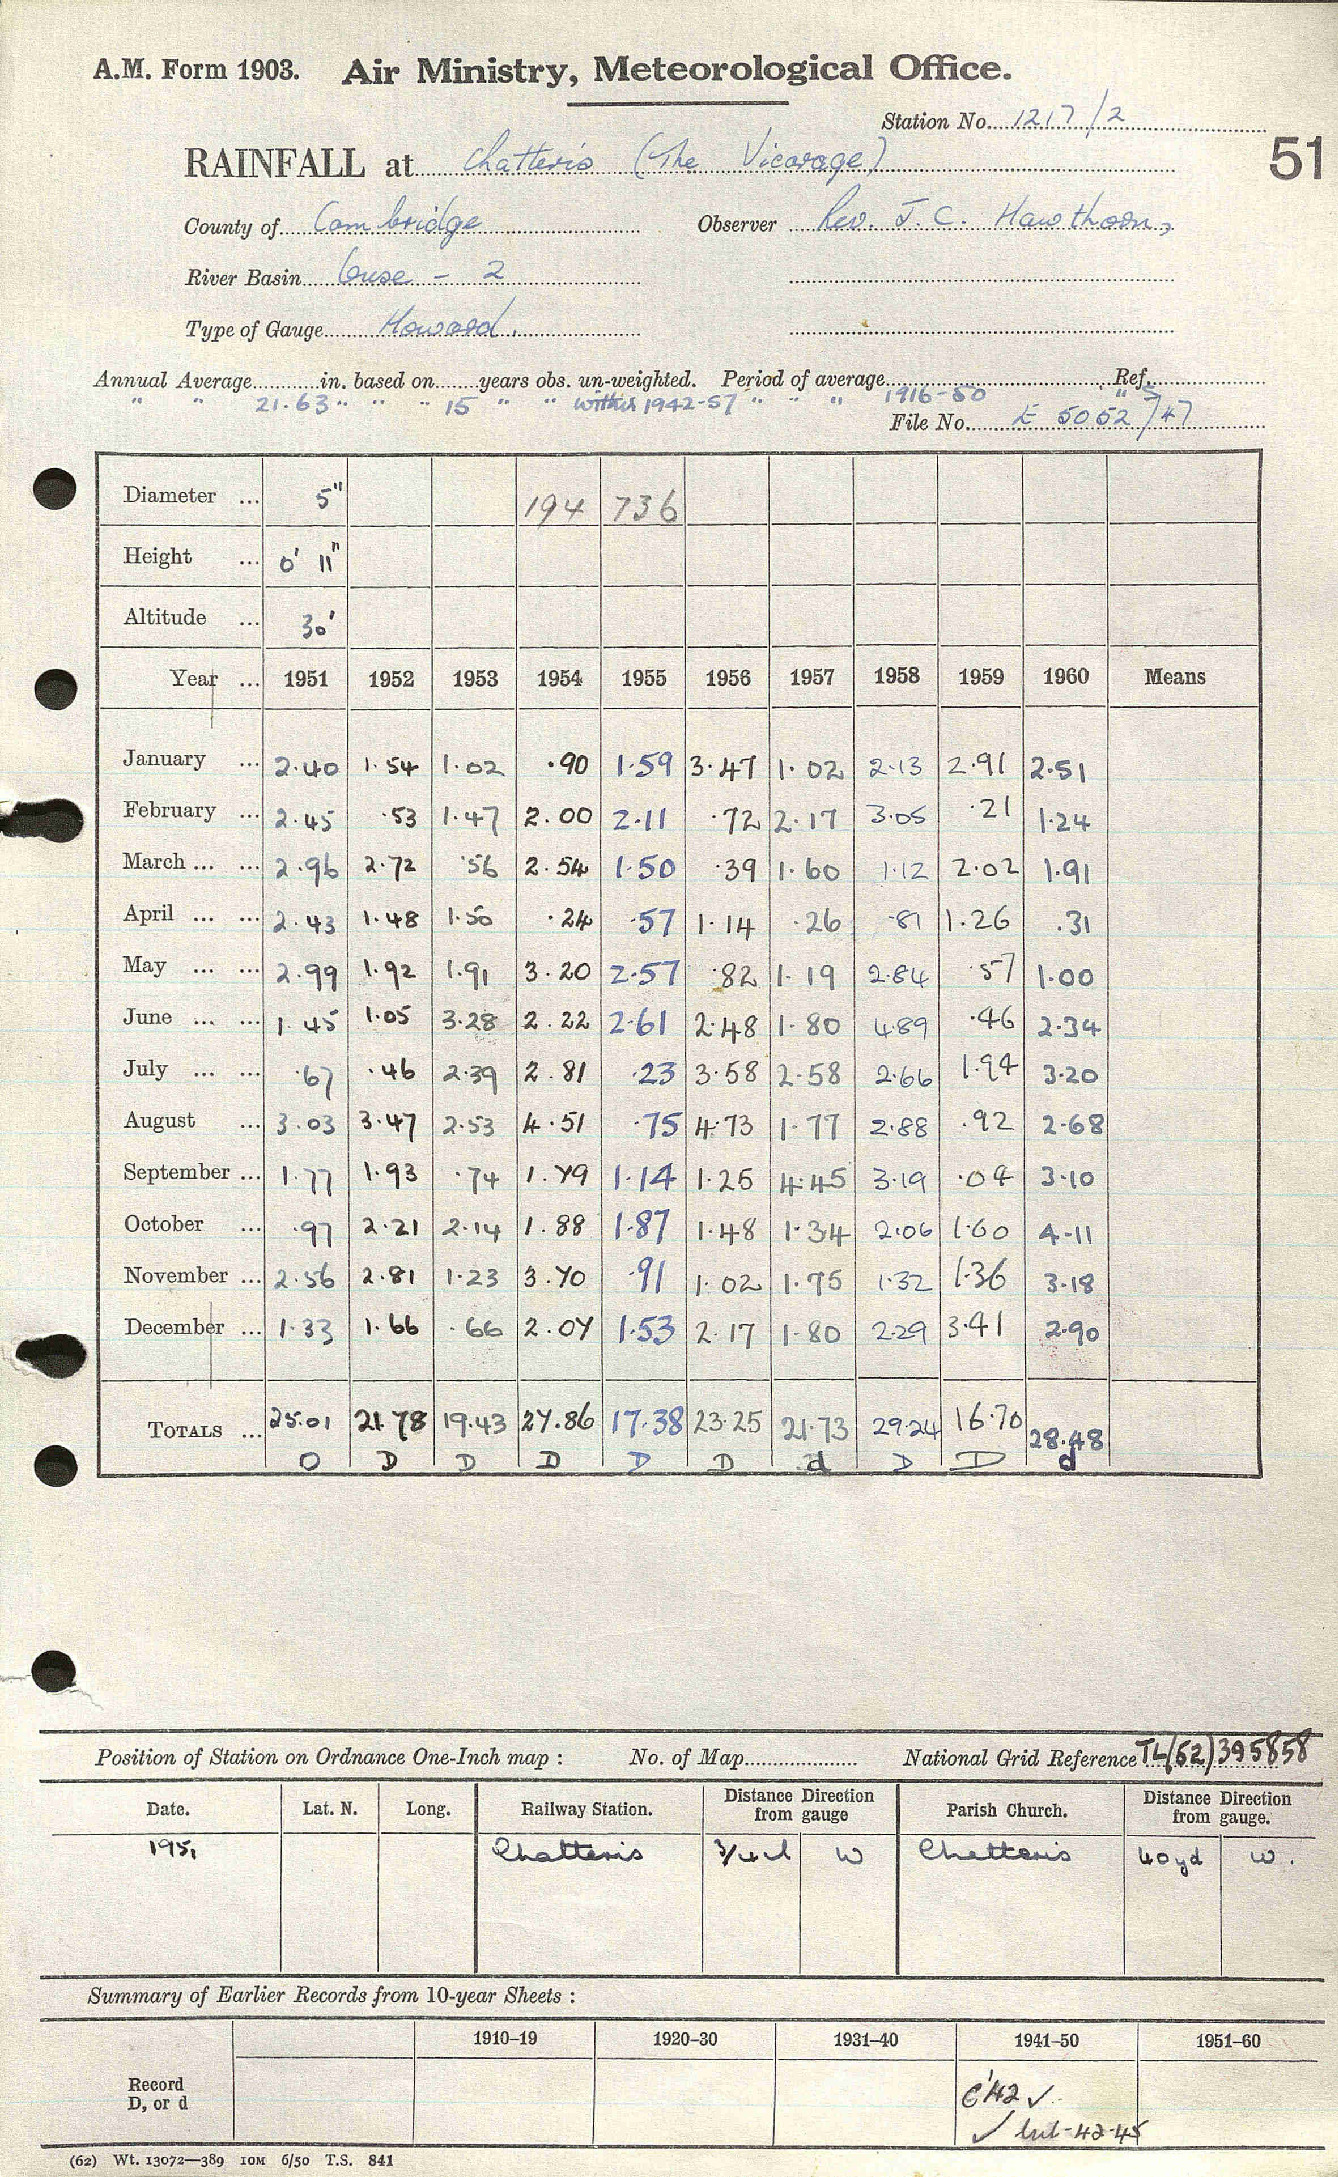 A.M. Form 1903. Air Ministry, Meteorological Office.
Station No. 1217/2
51
RAINFALL at Chatteris (The Vicarage)
County of Cambridge Observer Rev. J. C. Hawthorn,
River Basin Ouse - 2
Type of Gauge Howard.
Annual Average............in. based on........years obs. un-weighted. Period of average.................... Ref.
" " 21.63 " " " 15 " " within 1942-57 " " " 1916-50 "
File No. E 5052/47
Diameter ... 5" 194 736
Height ... 0' 11"
Altitude ... 30'
Year ... 1951 1952 1953 1954 1955 1956 1957 1958 1959 1960 Means
January ... 2.40 1.54 1.02 .90 1.59 3.47 1.02 2.13 2.91 2.51
February ... 2.45 .53 1.47 2.00 2.11 .72 2.17 3.05 .21 1.24
March ... ... 2.96 2.72 .56 2.54 1.50 .39 1.60 1.12 2.02 1.91
April ... ... 2.43 1.48 1.50 .24 .57 1.14 .26 .81 1.26 .31
May ... ... 2.99 1.92 1.91 3.20 2.57 .82 1.19 2.84 .57 1.00
June ... ... 1.45 1.05 3.28 2.22 2.61 2.48 1.80 4.89 .46 2.34
July ... ... .67 .46 2.39 2.81 .23 3.58 2.58 2.66 1.94 3.20
August ... 3.03 3.47 2.53 4.51 .75 4.73 1.77 2.88 .92 2.68
September ... 1.77 1.93 .74 1.79 1.14 1.25 4.45 3.19 .04 3.10
October ... .97 2.21 2.14 1.88 1.87 1.48 1.34 2.06 1.60 4.11
November ... 2.56 2.81 1.23 3.70 .91 1.02 1.75 1.32 1.36 3.18
December ... 1.33 1.66 .66 2.07 1.53 2.17 1.80 2.29 3.41 2.90
TOTALS ... 25.01 21.78 19.43 27.86 17.38 23.25 21.73 29.24 16.70 28.48
D D D D D D d D D d
Position of Station on Ordnance One-Inch map : No. of Map.................... National Grid Reference TL(52)395858
Date. Lat. N. Long. Railway Station. Distance Direction from gauge Parish Church. Distance Direction from gauge.
1951 Chatteris 3/4 ml W Chatteris 40 yd W.
Summary of Earlier Records from 10-year Sheets :
1910–19 1920–30 1931–40 1941–50 1951–60
Record
D, or d
C'42 ✓
✓ but-42-45
(62) Wt. 13072—389 10M 6/50 T.S. 841